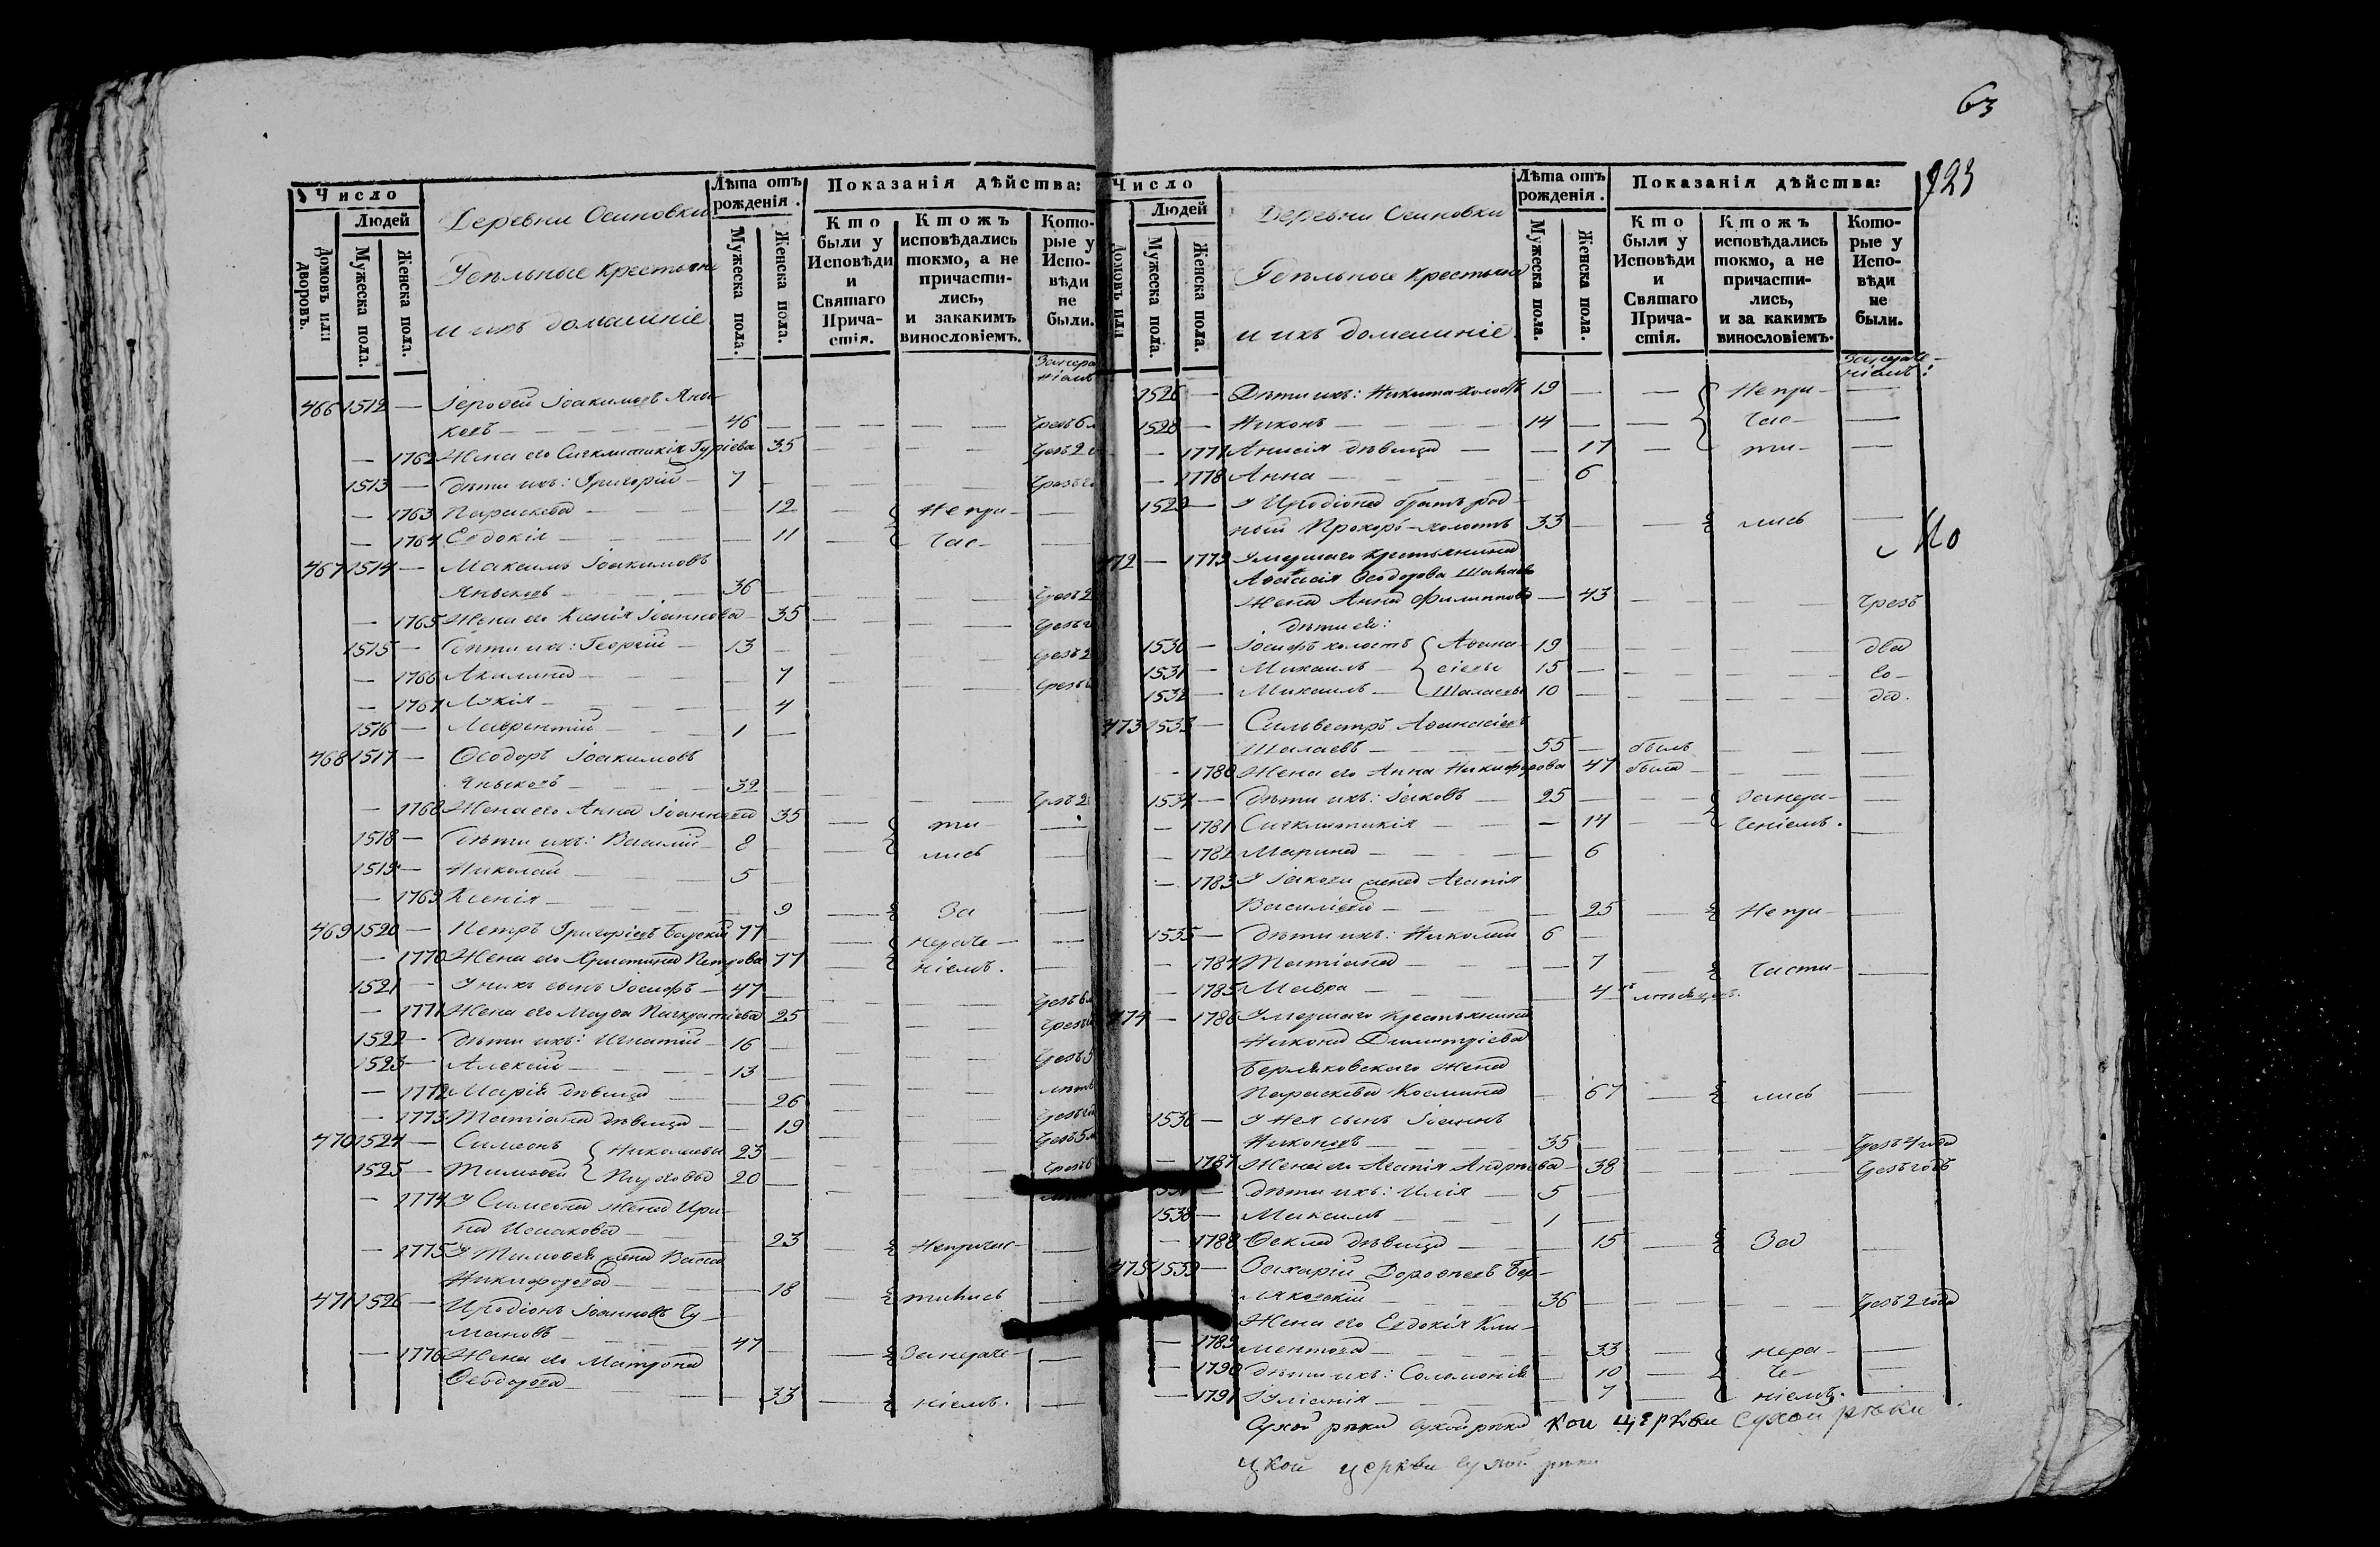 63
123
Число
Людей
Домовъ или дворовъ.
Мужеска пола.
Женска пола.
Деревни Осиновки
Удѣльные крестьяне
и ихъ домашніе
Лѣта отъ рожденія.
Мужеска пола.
Женска пола.
Показанія дѣйства:
Кто были у Исповѣди и Святаго Причастія.
Ктожъ исповѣдались токмо, а не причастились, и закакимъ винословіемъ.
Которые у Исповѣди не были.
466 1512 — Іерофей Іоакимовъ Яны-
ковъ — 46
— 1762 Жена его Сигклитикія Гуріева 35
1513 — Дѣти ихъ: Григорій — 7
— 1763 Параскева — 12 — Непри-
— 1764 Евдокія — 11 — час-
467 1514 — Максимъ Іоакимовъ
Яныковъ — 36
— 1765 Жена его Ксенія Іоаннова — 35
1515 — Дѣти ихъ: Георгій — 13
— 1766 Акилина — 7
— 1767 Лукія — 4
1516 — Лаврентій — 1
468 1517 — Ѳеодоръ Іоакимовъ
Яныковъ — 32
— 1768 Жена его Анна Іоаннова 35 — ти-
1518 — Дѣти ихъ: Василій — 8 — лись
1519 — Николай — 5
— 1769 Ксенія — 9 — За
469 1520 — Петръ Григоріевъ 77 — нераче-
— 1770 Жена его Христина Петрова 77 — ніемъ.
1521 — У нихъ сынъ Іосифъ — 47
— 1771 Жена его Марѳа Панкратіева 25
1522 — Дѣти ихъ: Игнатій — 16
1523 — Алексій — 13
— 1772 Марія дѣвица — 26
— 1773 Татіана дѣвица — 19
470 1524 — Симеонъ { Николаевы 23
1525 — Тимоѳей { 20
— 1774 У Симеона жена Ири-
на Исаакова — 23 — Непричас-
— 1775 У Тимоѳея жена Васса
Никифорова — 18 — тились
471 1526 — Иродіонъ Іоанновъ Чу-
мановъ — 47
— 1776 Жена его Матрона — Занераче-
Ѳеодорова — 33 — ніемъ.
Число
Людей
Домовъ или
Мужеска пола.
Женска пола.
Деревни Осиновки
Удѣльные крестьяне
и ихъ домашніе
Лѣта отъ рожденія.
Мужеска пола.
Женска пола.
Показанія дѣйства:
Кто были у Исповѣди и Святаго Причастія.
Ктожъ исповѣдались токмо, а не причастились, и за какимъ винословіемъ.
Которые у Исповѣди не были.
Занераче-
ніемъ:
— Дѣти ихъ: Никита-холостъ 19 — Непри-
1528 — Никонъ — 14 — час-
— 1777 Анисія дѣвица — 17 — ти-
— 1778 Анна — 6
1529 — У Иродіона братъ род-
ный Прохоръ-холостъ 33 — лись
472 — 1779 Умершаго крестьянина
Аѳанасія Ѳеодорова
жена Анна Филиппова — 43 — Чрезъ
дѣти ея:
1530 — Іосифъ холостъ { Аѳана- 19 — два
1531 — Михаилъ { сіевы 15 — го-
1532 — Михаилъ { Шалаевы 10 — да.
473 1533 — Сильвестръ Аѳанасіевъ
Шалаевъ — 55 — былъ
— 1780 Жена его Анна Никифорова 47 была
1534 — Дѣти ихъ: Іаковъ — 25 — Занера-
— 1781 Сигклитикія — 14 — ченіемъ.
— 1782 Марина — 6
— 1783 У Іакова жена Агапія
Василіева — 25 — Непри-
1535 — Дѣти ихъ: Николай 6
— 1784 Татіана — 7 — части-
— 1785 Мавра — 4
474 — 1786 Умершаго крестьянина
Никона Димитріева
Берляковскаго жена
Параскева Космина 67 — лись
1536 — У нея сынъ Іоаннъ
Никоновъ — 35 — Чрезъ 4 года
— 1787 Жена его Агапія Андреева — 38 — Чрезъ годъ
— Дѣти ихъ: Илія — 5
1538 — Максимъ — 1
— 1788 Ѳекла дѣвица — 15 — За
475 1539 — Захарій Дороѳеевъ Бер-
ляковскій — 36 — Чрезъ 2 года
Жена его Евдокія Кли-
— 1789 ментова — 33 — нера-
— 1790 Дѣти ихъ: Соломонія — 10 — че-
— 1791 Іуліанія — 7 — ніемъ.
Сухой рѣки Сухой рѣки кои церкви Сухой рѣки
цкой церкви Сухой рѣки